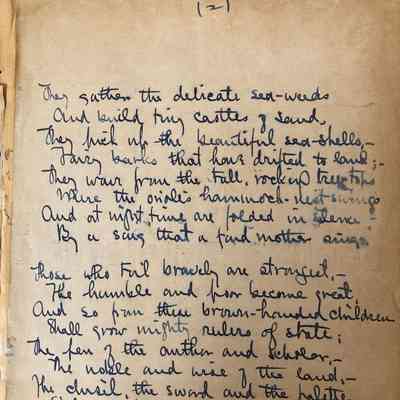 (2)
They gather the delicate sea-weeds
And build tiny castles of sand,
They pick up the beautiful sea-shells,—
Fairy barks that have drifted to land;—
They wave from the tall, rocking tree-tops
Where the oriole's hammock-nest swings
And at night time are folded in silence
By a song that a fond mother sings
Those who toil bravely are strongest,—
The humble and poor become great,
And so from these brown-handed children
Shall grow mighty rulers of state;
The pen of the author and scholar,—
The noble and wise of the land,—
The chisel, the sword and the palette